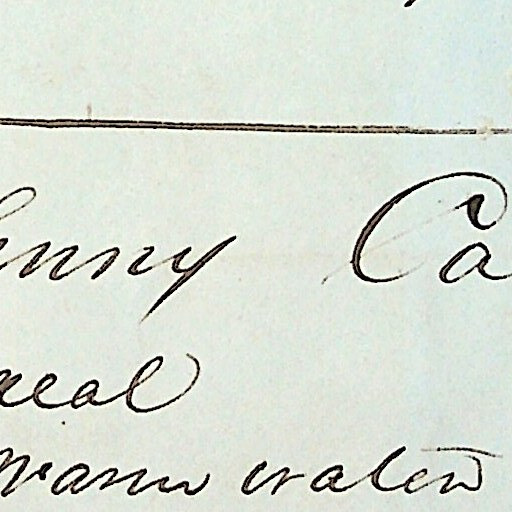 enny Ca
meal
warm water